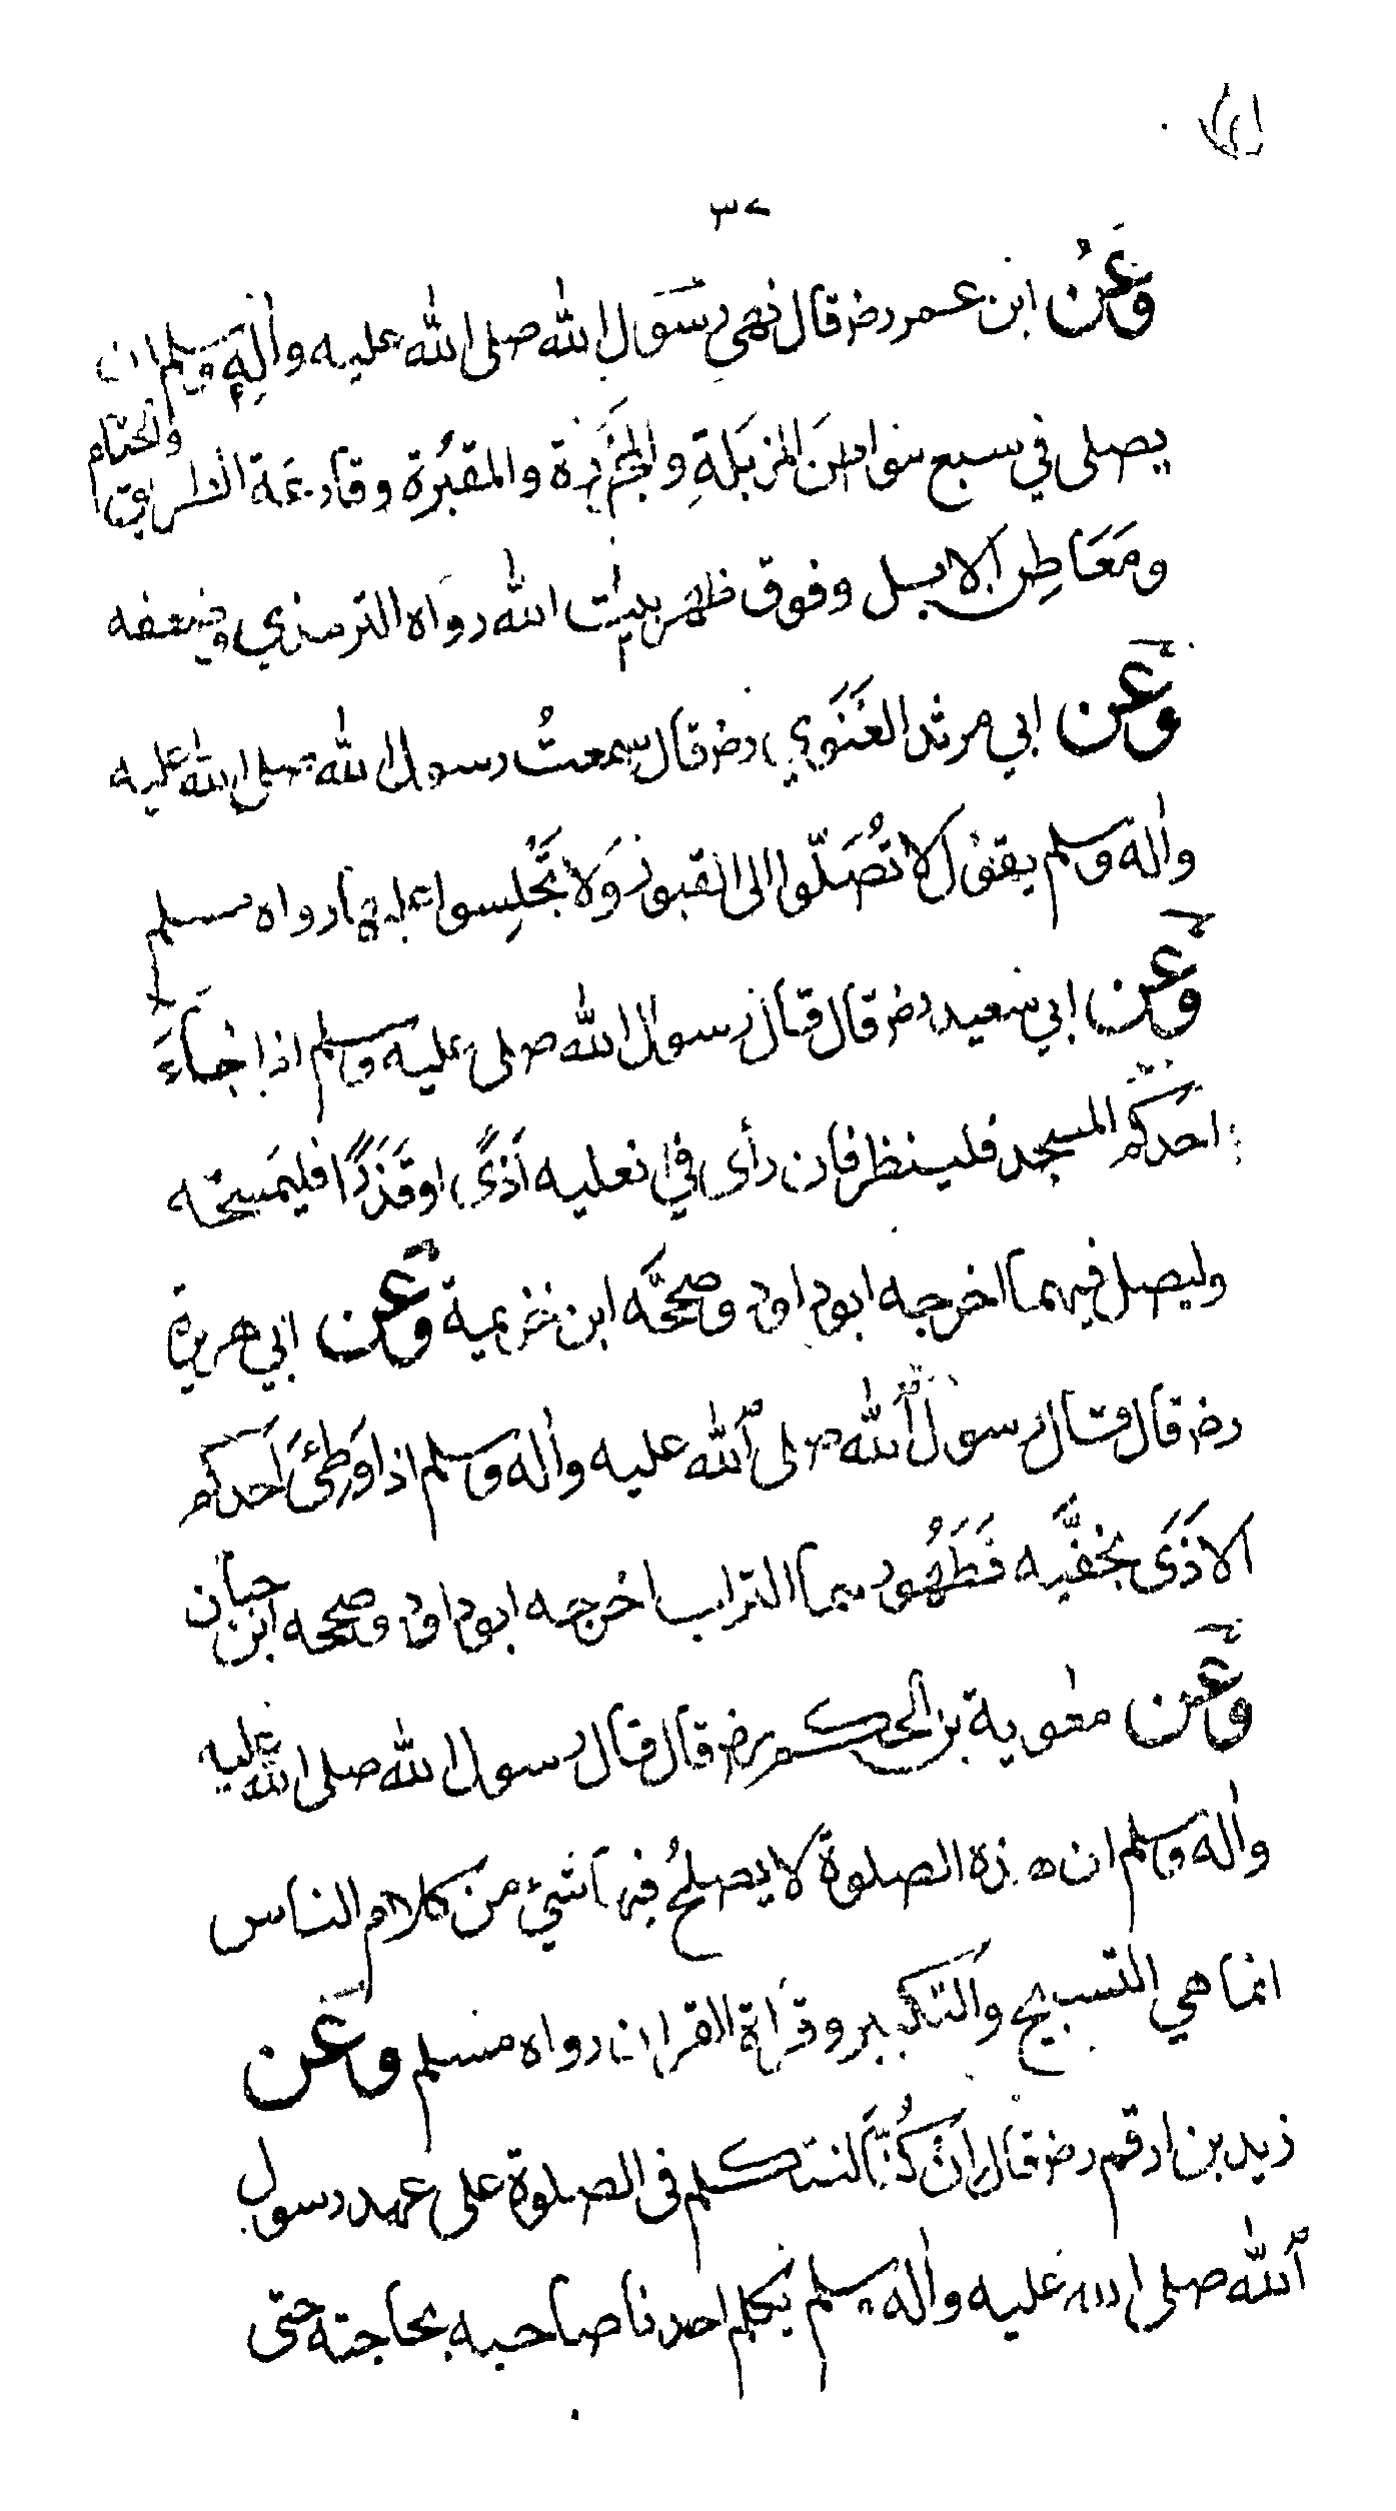 ٣٢
وَعَنْ ابن عمر رضر قال نهى رسَول الله صلى الله عليه واٰلِهٖ وسلم ان
يصلى في سبع مواطن المزبَلَةِ والمجَزَرَة والمقبُرة وقارعَة الطريق والحمّام
ومَعَاطِن الابل وفوق ظهر بيت الله رواه الترمذي وضعفه
وعن ابي مرثد الغَنَوَي رضر قال سمعتُ رسول الله صلى الله عليه
واٰله وسلم يقول لا تُصَلّوا الى القبور وَلا تَجْلِسوا عليها رواه مسلم
وعن ابي سعيد رضر قال قال رسول الله صلى عليه وسلم اذا جَاءَ
احَدكم المسجد فلينظر فان رأى في نعليه اَذًى او قَذَرًا فليَمسَحه
وليصل فيهما اخرجه ابوداود وصححَّه ابن خزيمة وعن ابي هريرة
رضر قال قال رسول ٱلله صلى ٱلله عليه واٰله وسلم اذا وَطِئَ اَحَدكم
الاَذَىَ بخفَّيه فَطَهُور هما التراب اخرجه ابوداود وصححه ابن حبان
وعن معٰوية بن الحكم رضر قال قال رسول الله صلى الله عليه
واٰله وسلم ان هذه الصلوة لا يصلحُ فيها شيء من كلام الناس
انما هي التسبيح والتكبير وقرَاة القران رواه مسلم وعَن
زيد بن ارقم رضر قال اِنْ كُنَّا لنتكلم فى الصلوة على عهد رسول
ٱلله صلى الله عليه واٰله وسلم يكلم احدنا صاحبه بحاجته حتى